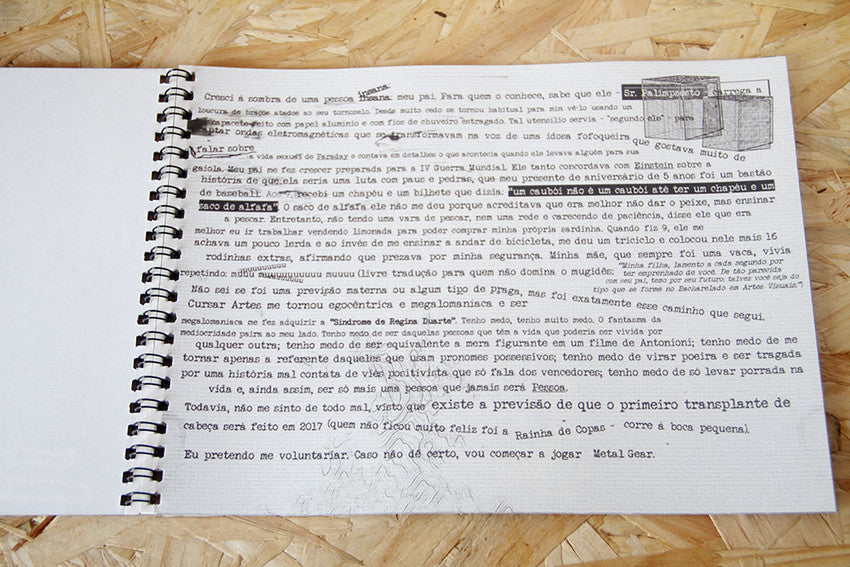 Cresci à sombra de uma pessoa insana insana: meu pai. Para quem o conhece, sabe que ele - Sr. Palimpsesto - carrega a
loucura de braços atados ao seu tornozelo. Desde muito cedo se tornou habitual para mim vê-lo usando um
capacete feito com papel alumínio e com fios de chuveiro estragado. Tal utensílio servia - "segundo ele" - para
captar ondas eletromagnéticas que se transformavam na voz de uma idosa fofoqueira que gostava muito de
falar sobre a vida sexual de Faraday e contava em detalhes o que acontecia quando ele levava alguém para sua
gaiola. Meu pai me fez crescer preparada para a IV Guerra Mundial. Ele tanto concordava com Einstein sobre a
história de que ela seria uma luta com paus e pedras, que meu presente de aniversário de 5 anos foi um bastão
de baseball. Aos 7, recebi um chapéu e um bilhete que dizia: "um caubói não é um caubói até ter um chapéu e um
saco de alfafa". O saco de alfafa ele não me deu porque acreditava que era melhor não dar o peixe, mas ensinar
a pescar. Entretanto, não tendo uma vara de pescar, nem uma rede e carecendo de paciência, disse ele que era
melhor eu ir trabalhar vendendo limonada para poder comprar minha própria sardinha. Quando fiz 9, ele me
achava um pouco lerda e ao invés de me ensinar a andar de bicicleta, me deu um triciclo e colocou nele mais 16
rodinhas extras, afirmando que prezava por minha segurança. Minha mãe, que sempre foi uma vaca, vivia
repetindo: muuu muuuuuuuuuu muuuu (livre tradução para quem não domina o mugidês: "Minha filha, lamento a cada segundo por
ter emprenhado de você. De tão parecida
com seu pai, temo por seu futuro: talvez você seja do
tipo que se forme no Bacharelado em Artes Visuais.").
Não sei se foi uma previsão materna ou algum tipo de Praga, mas foi exatamente esse caminho que segui.
Cursar Artes me tornou egocêntrica e megalomaníaca e ser
megalomaníaca me fez adquirir a "Síndrome de Regina Duarte". Tenho medo, tenho muito medo. O fantasma da
mediocridade paira ao meu lado. Tenho medo de ser daquelas pessoas que têm a vida que poderia ser vivida por
qualquer outra; tenho medo de ser equivalente a mera figurante em um filme de Antonioni; tenho medo de me
tornar apenas a referente daqueles que usam pronomes possessivos; tenho medo de virar poeira e ser tragada
por uma história mal contata de viés positivista que só fala dos vencedores; tenho medo de só levar porrada na
vida e, ainda assim, ser só mais uma pessoa que jamais será Pessoa.
Todavia, não me sinto de todo mal, visto que existe a previsão de que o primeiro transplante de
cabeça será feito em 2017 (quem não ficou muito feliz foi a Rainha de Copas - corre à boca pequena).
Eu pretendo me voluntariar. Caso não dê certo, vou começar a jogar Metal Gear.